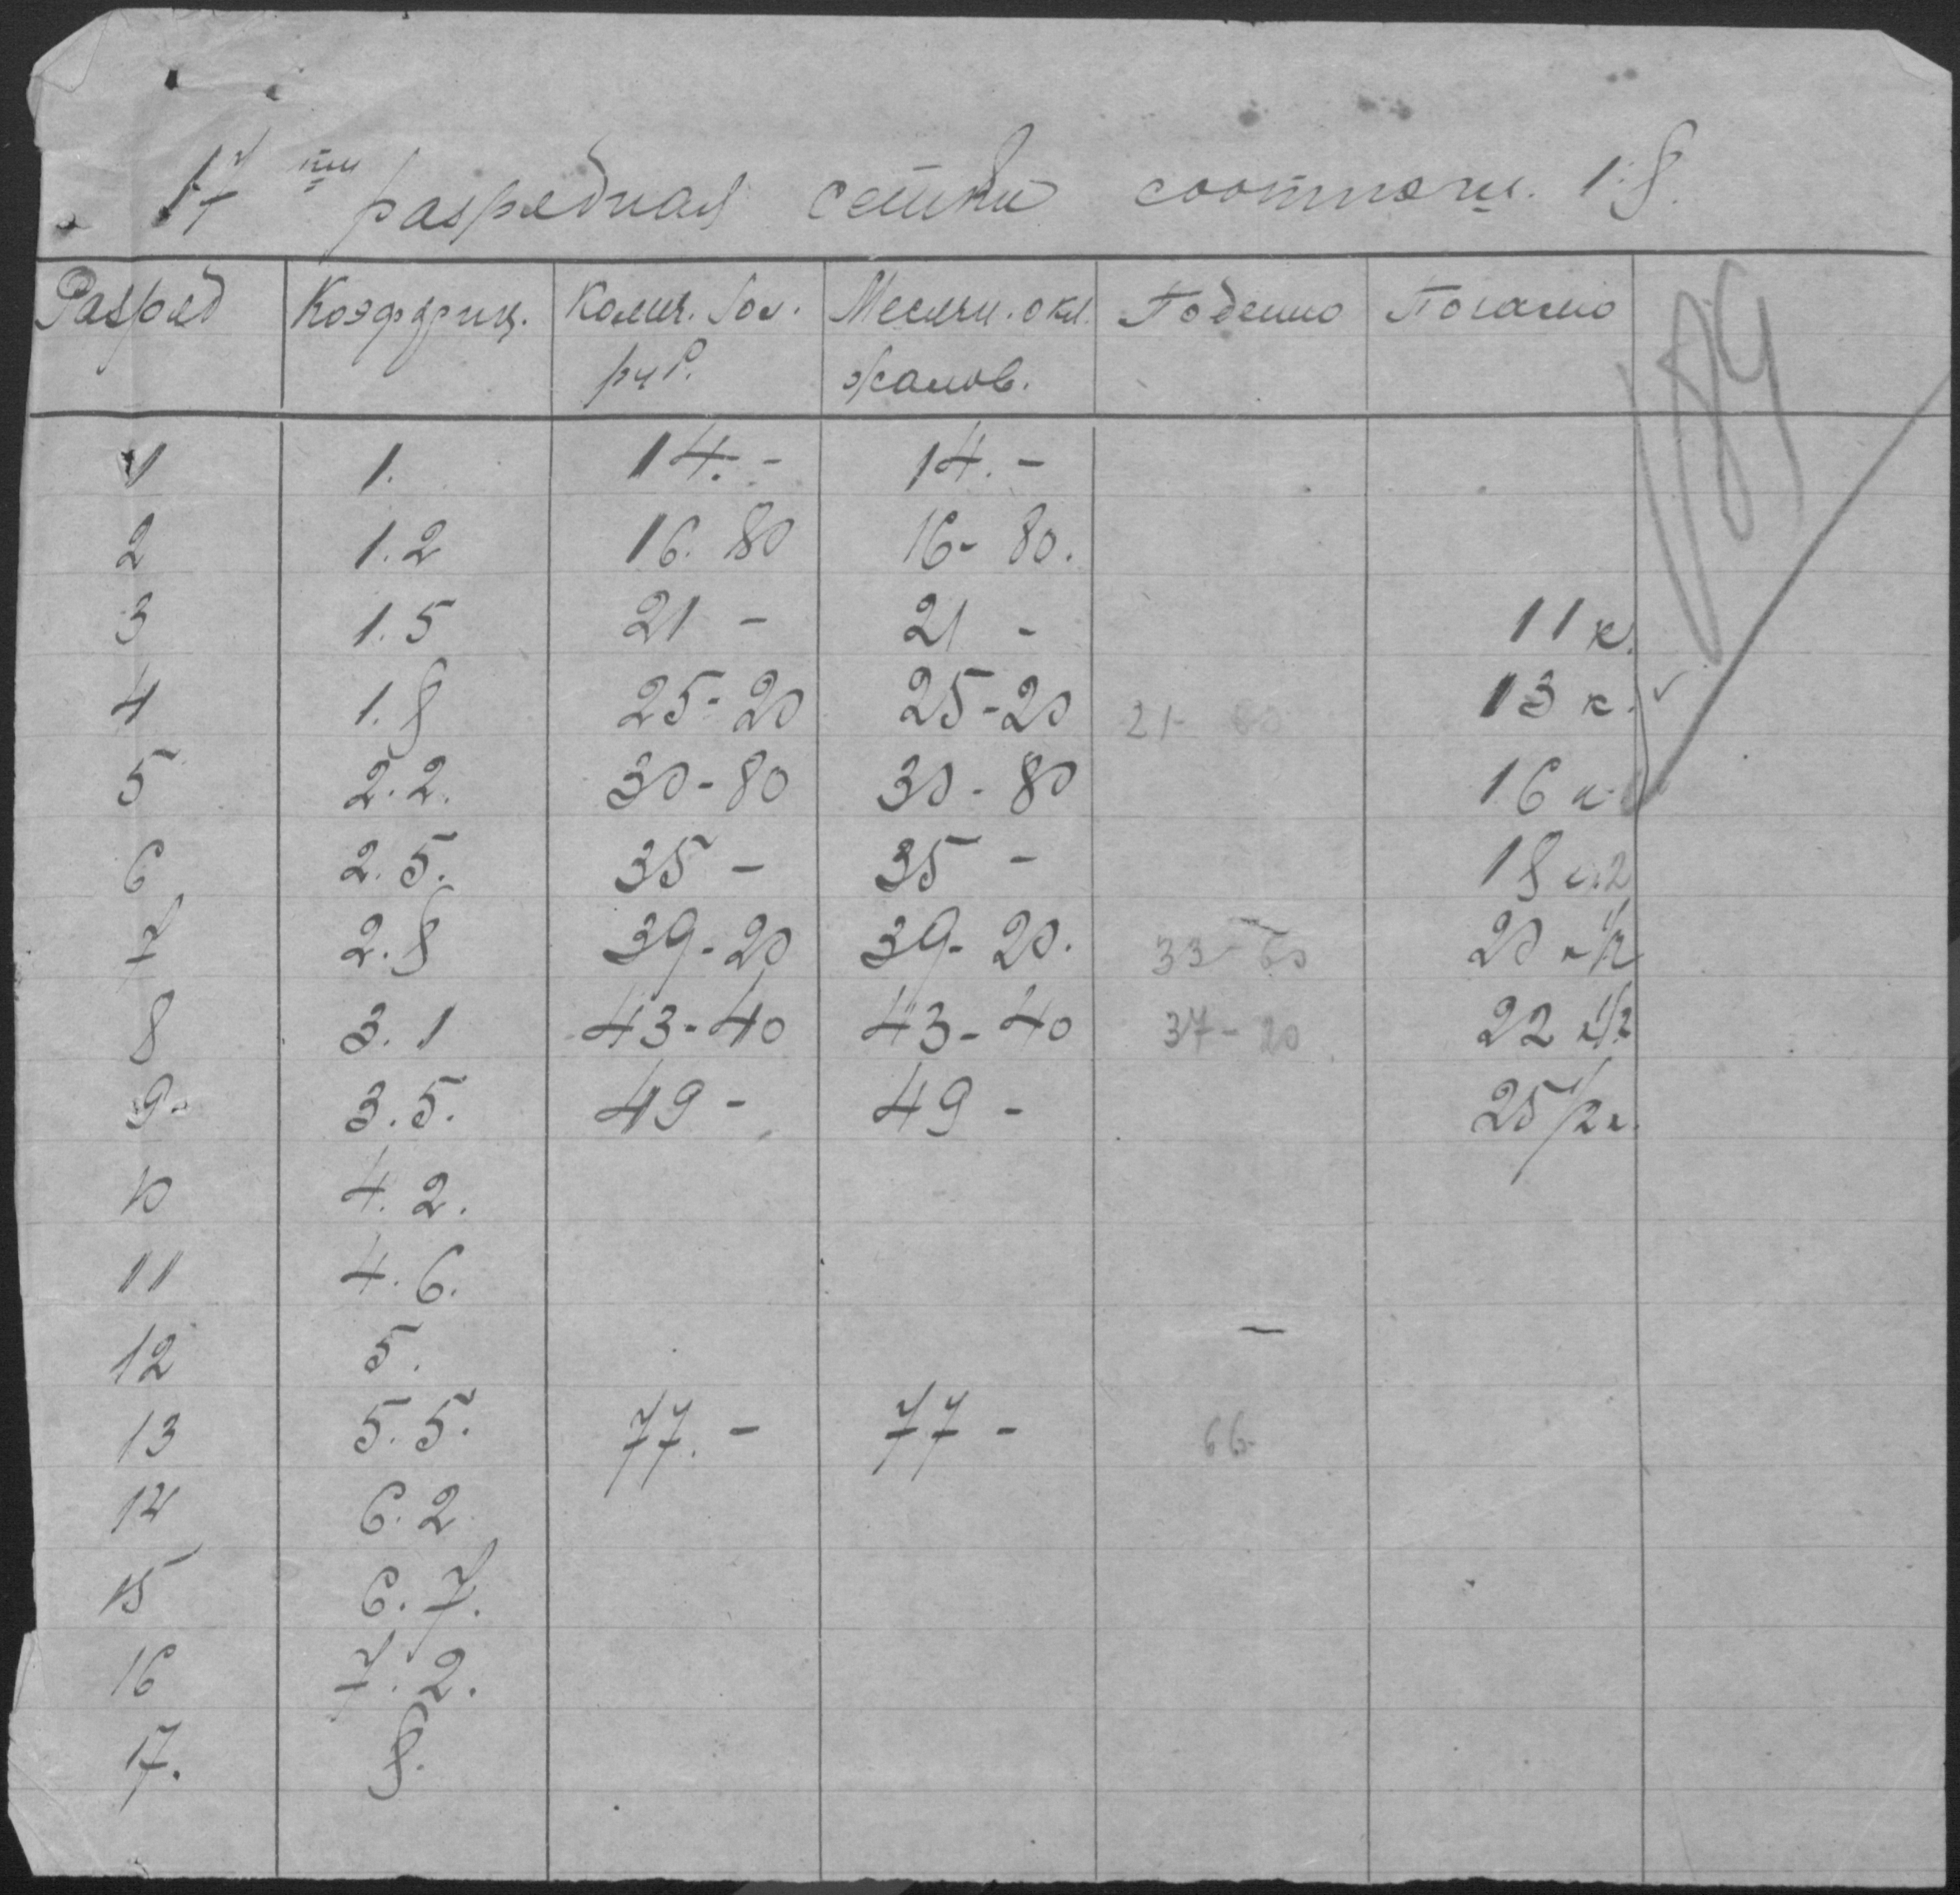 17 ти разрядная сетка соотнош. 1:8.
Разряд Коэффиц. Колич. зол. Месячн. окл. Поденно Почасно
руб. жалов.
1 1. 14. - 14. -
2 1.2 16. 80 16 - 80.
3 1.5 21 - 21 - 11 к.
4 1.8 25 - 20 25 - 20 21 - 60 13 к.
5 2.2. 30 - 80 30 - 80 16 к.
6 2.5. 35 - 35 - 18
7 2.8 39 - 20 39 - 20. 33 - 60 20 к 1/2
8 3.1 43 - 40 43 - 40 37 - 20 22 к 1/2
9 3.5. 49 - 49 - 25 1/2 к.
10 4.2.
11 4.6.
12 5. —
13 5.5. 77. - 77 - 66
14 6.2
15 6.7.
16 7.2.
17. 8.